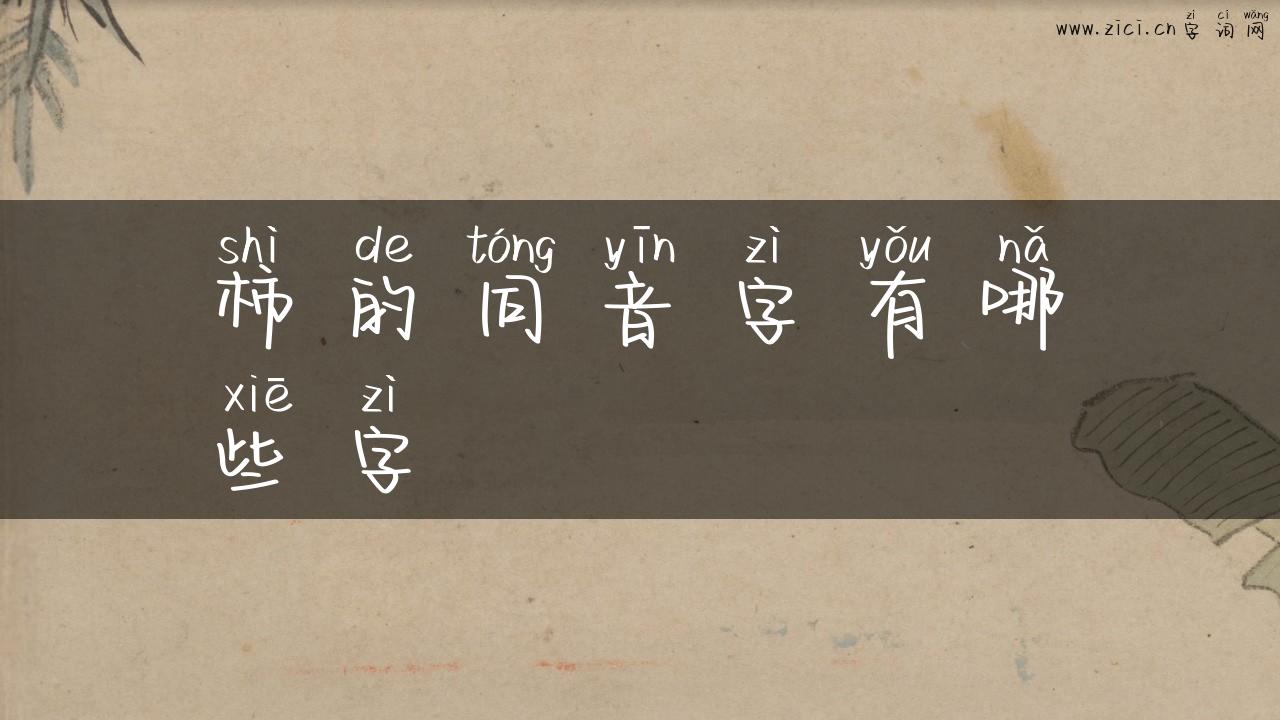 zì cí wǎng
www.zici.cn 字 词 网
shì de tóng yīn zì yǒu nǎ
柿 的 同 音 字 有 哪
xiē zì
些 字